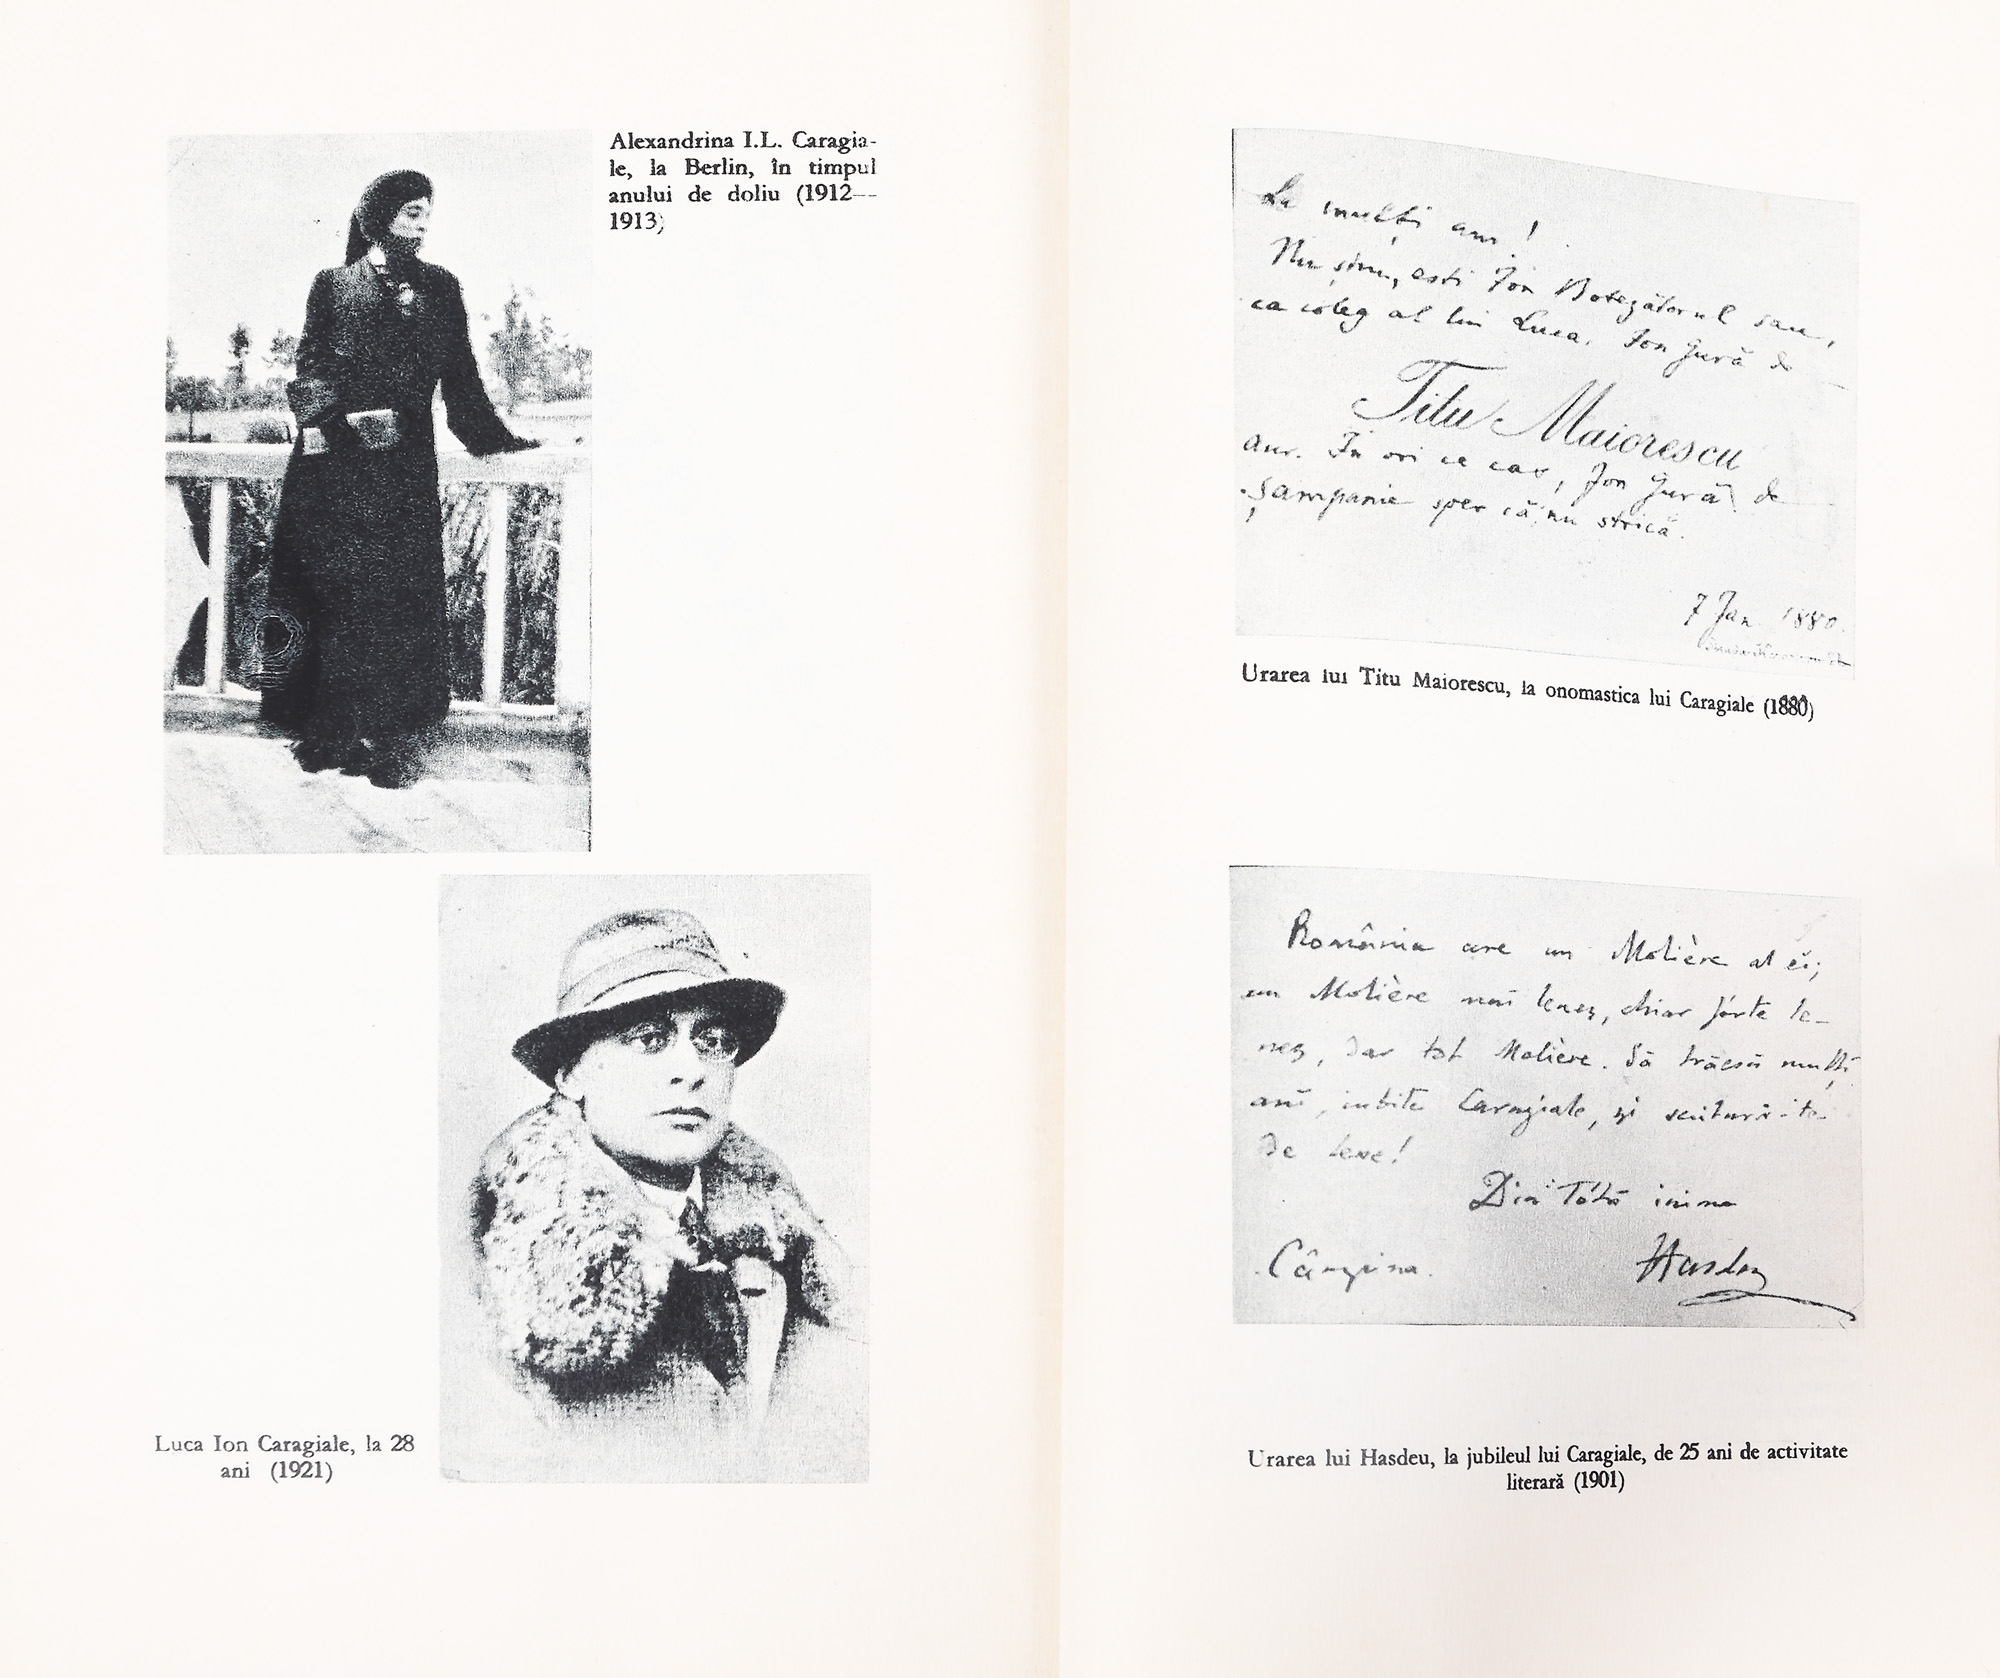 Alexandrina I.L. Caragia-
le, la Berlin, în timpul
anului de doliu (1912—
1913)
Luca Ion Caragiale, la 28
ani (1921)
La mulți ani!
Nu știu, esti Ion Botezătorul sau,
ca coleg al lui Luca, Ion Gură de
Titu Maiorescu
aur. In ori ce cas, Ion Gură de
Șampanie sper că nu strică.
7 Jan 1880.
Urarea lui Titu Maiorescu, la onomastica lui Caragiale (1880)
România are un Molière al ei;
un Molière mai leneș, chiar fórte le-
neș, dar tot Molière. Să trăesci mulți
ani, iubite Caragiale, și scutură-te
de lene!
Din tótă inima
Hasdeu
Câmpina.
Urarea lui Hasdeu, la jubileul lui Caragiale, de 25 ani de activitate
literară (1901)